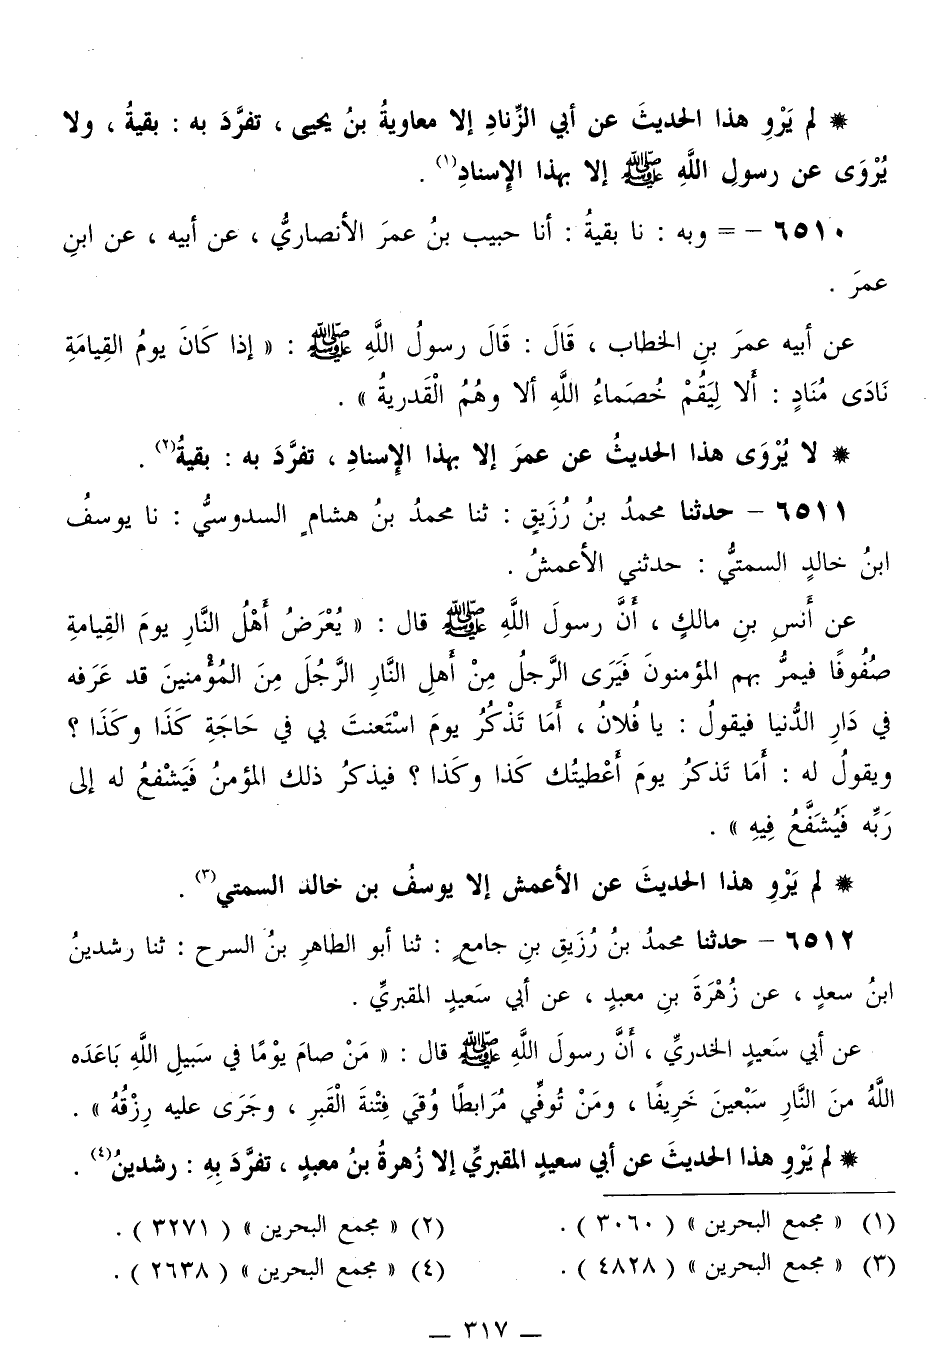 * لم يَرْوِ هذا الحديثَ عن أبي الزِّنادِ إلا معاويةُ بنُ يحيى ، تفرَّدَ به : بقيةُ ، ولا
يُرْوَى عن رسولِ اللَّهِ ﷺ إلا بهذا الإِسنادِ(١) .
٦٥١٠ - = وبه : نا بقيةُ : أنا حبيب بنُ عمرَ الأنصاريُّ ، عن أبيه ، عن ابنِ
عمرَ .
عن أبيه عمرَ بنِ الخطاب ، قَالَ : قَالَ رسولُ اللَّهِ ﷺ : « إذا كَانَ يومُ القِيامَةِ
نَادَى مُنَادٍ : أَلا لِيَقُمْ خُصَماءُ اللَّهِ ألا وهُمُ الْقَدريةُ » .
* لا يُرْوَى هذا الحديثُ عن عمرَ إلا بهذا الإِسنادِ ، تفرَّدَ به : بقيةُ(٢) .
٦٥١١ - حدثنا محمدُ بنُ رُزَيقٍ : ثنا محمدُ بنُ هشامٍ السدوسيُّ : نا يوسفُ
ابنُ خالدٍ السمتيُّ : حدثني الأعمشُ .
عن أَنسِ بنِ مالكٍ ، أَنَّ رسولَ اللَّهِ ﷺ قال : « يُعْرَضُ أَهْلُ النَّارِ يومَ القِيامَةِ
صُفُوفًا فيمرُّ بهم المؤمنونَ فَيَرَى الرَّجلُ مِنْ أَهلِ النَّارِ الرَّجُلَ مِنَ المُؤْمنينَ قد عَرَفه
في دَارِ الدُّنيا فيقولُ : يا فُلانُ ، أَمَا تَذْكُرُ يومَ اسْتَعنتَ بي في حَاجَةِ كَذَا وكَذَا ؟
ويقولُ له : أَمَا تَذكرُ يومَ أَعْطيتُك كَذا وكَذا ؟ فيذكرُ ذلك المؤمنُ فَيَشْفعُ له إلى
رَبِّه فَيُشَفَّعُ فِيهِ » .
* لم يَرْوِ هذا الحديثَ عن الأعمش إلا يوسفُ بن خالد السمتي(٣) .
٦٥١٢ - حدثنا محمدُ بنُ رُزَيقِ بنِ جامعٍ : ثنا أبو الطاهرِ بنُ السرح : ثنا رشدينُ
ابنُ سعدٍ ، عن زُهْرَةَ بنِ معبدٍ ، عن أبي سَعيدٍ المقبريِّ .
عن أبي سَعيدٍ الخدريِّ ، أَنَّ رسولَ اللَّهِ ﷺ قال : « مَنْ صامَ يوْمًا في سَبيلِ اللَّهِ بَاعَدَه
اللَّهُ منَ النَّارِ سَبْعينَ خَرِيفًا ، ومَنْ تُوفِّي مُرَابطًا وُقيَ فِتْنةَ الْقَبرِ ، وجَرَى عليه رِزْقُهُ » .
* لم يَرْوِ هذا الحديثَ عن أبي سعيدٍ المقبريِّ إلا زُهرةُ بنُ معبدٍ ، تفرَّدَ بِهِ : رشدينُ(٤) .
(١) « مجمع البحرين » ( ٣٠٦٠ ) . (٢) « مجمع البحرين » ( ٣٢٧١ ) .
(٣) « مجمع البحرين » ( ٤٨٢٨ ) . (٤) « مجمع البحرين » ( ٢٦٣٨ ) .
— ٣١٧ —